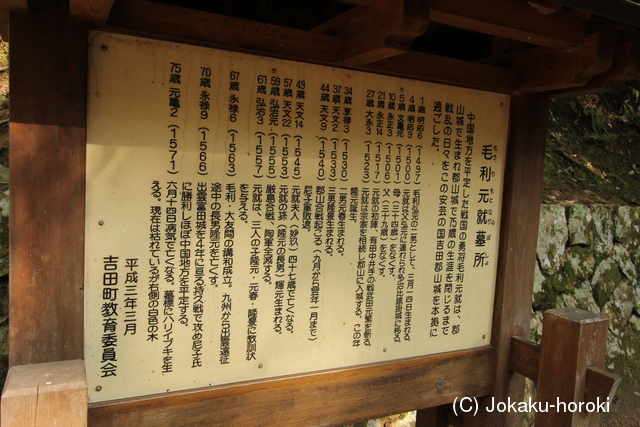 毛利元就墓所
もうりもとなりぼしょ
中国地方を平定した戦国の勇将毛利元就は、郡
山城で生まれ郡山城で75歳の生涯を閉じるまで
戦乱の日々をこの安芸の国吉田郡山城を本拠に
過ごした。
1歳 明応6 (1497) 毛利弘元の二男として、三月一四日生まれる。
4歳 明応9 (1500) 元就は父弘元に連れられ多治比猿掛城に移る。
5歳 文亀元 (1501) 母(三十四歳)をなくす。
10歳 永正3 (1506) 父(三十九歳)をなくす。
21歳 永正14 (1517) 元就の初陣、有田中井手の戦武田元繁を斬る。
27歳 大永3 (1523) 元就は宗家を相続し郡山に入城する。この年
隆元誕生。
34歳 享禄3 (1530) 二男元春生まれる。
37歳 天文2 (1533) 三男隆景生まれる。
44歳 天文9 (1540) 郡山合戦起こる(九月から翌年一月まで)
尼子軍敗退。
49歳 天文14 (1545) 元就夫人(妙玖)四十七歳で亡くなる。
57歳 天文22 (1553) 元就の孫(隆元の長男)輝元生まれる。
59歳 弘治元 (1555) 厳島合戦、陶軍全滅する。
61歳 弘治3 (1557) 元就は、三人の子隆元・元春・隆景に教訓状
を与える。
67歳 永禄6 (1563) 毛利・大友間の講和成立。九州から出雲遠征
途中の長男隆元を亡くす。
70歳 永禄9 (1566) 出雲富田城を4年に亘る持久戦で攻め尼子氏
に勝利しほぼ中国地方を平定する。
75歳 元亀2 (1571) 六月十四日病気で亡くなる。墓標にハリイブキを生
える。現在は枯れているが右側の白色の木
平成三年三月
吉田町教育委員会
(C) Jokaku-horoki